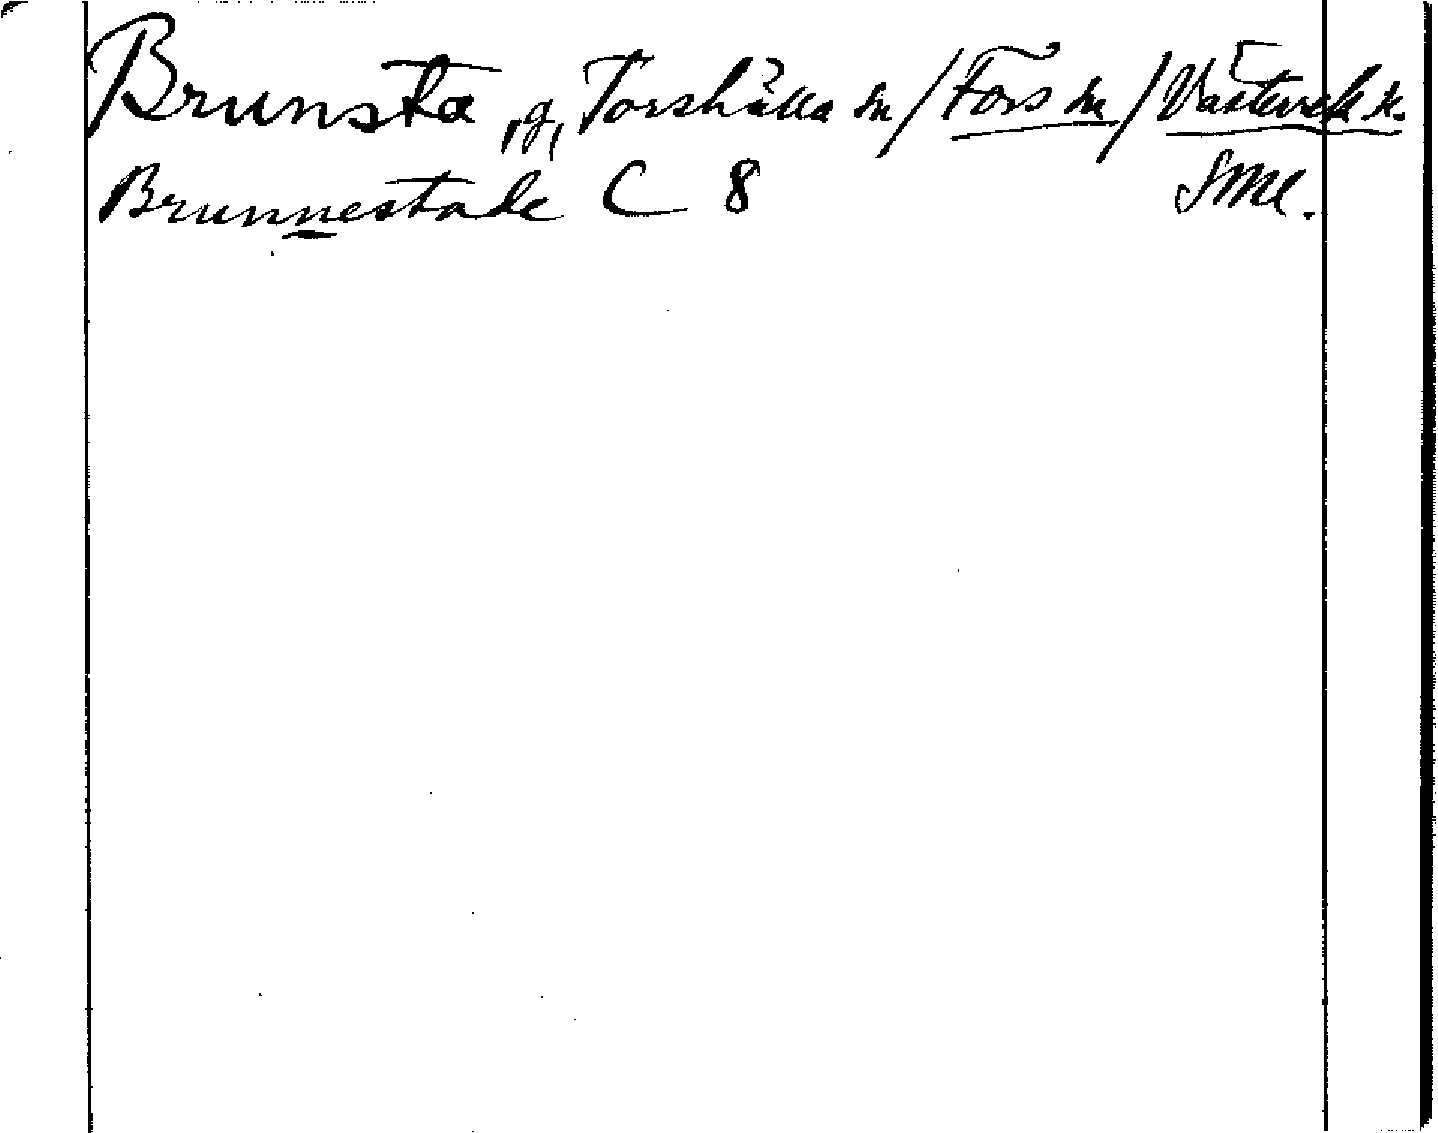 Brunsta, g, Torshälla sn / Fors sn / Västerrek h.
Brunnestade C 8 Sml.